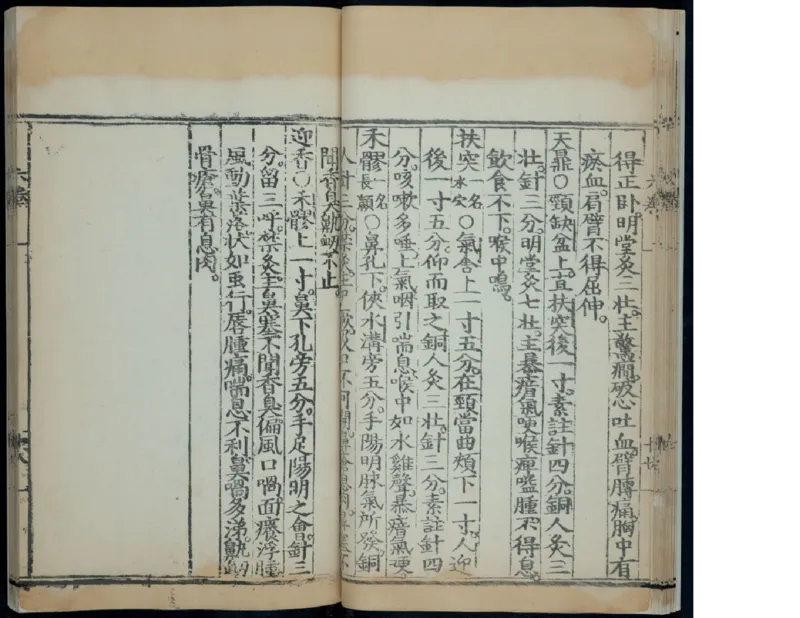 得正卧。明堂灸三壯。主驚癎。破心吐血。臂膊痛。胸中有
瘀血。肩臂不得屈伸。
天鼎○頸缺盆上。直扶突後一寸。素註針四分。銅人灸三
壯。針三分。明堂灸七壯。主暴瘖氣哽。喉痺嗌腫。不得息。
飲食不下。喉中鳴。
扶突一名水穴○氣舍上一寸五分。在頸當曲頰下一寸。人迎
後一寸五分。仰而取之。銅人灸三壯。針三分。素註針四
分。咳嗽多唾。上氣咽引喘息。喉中如水雞聲。暴瘖氣哽
禾髎一名長頻○鼻孔下。俠水溝旁五分。手陽明脉氣所發。銅
人針三分。禁灸。主
聞香臭。鼽衄不止。
迎香○禾髎上一寸。鼻下孔旁五分。手足陽明之會。針三
分。留三呼。禁灸。主鼻塞不聞香臭。偏風口喎。面癢浮腫
風動葉落。狀如虫行。唇腫痛。喘息不利。鼻喎多涕。鼽衄
骨瘡。鼻有息肉。